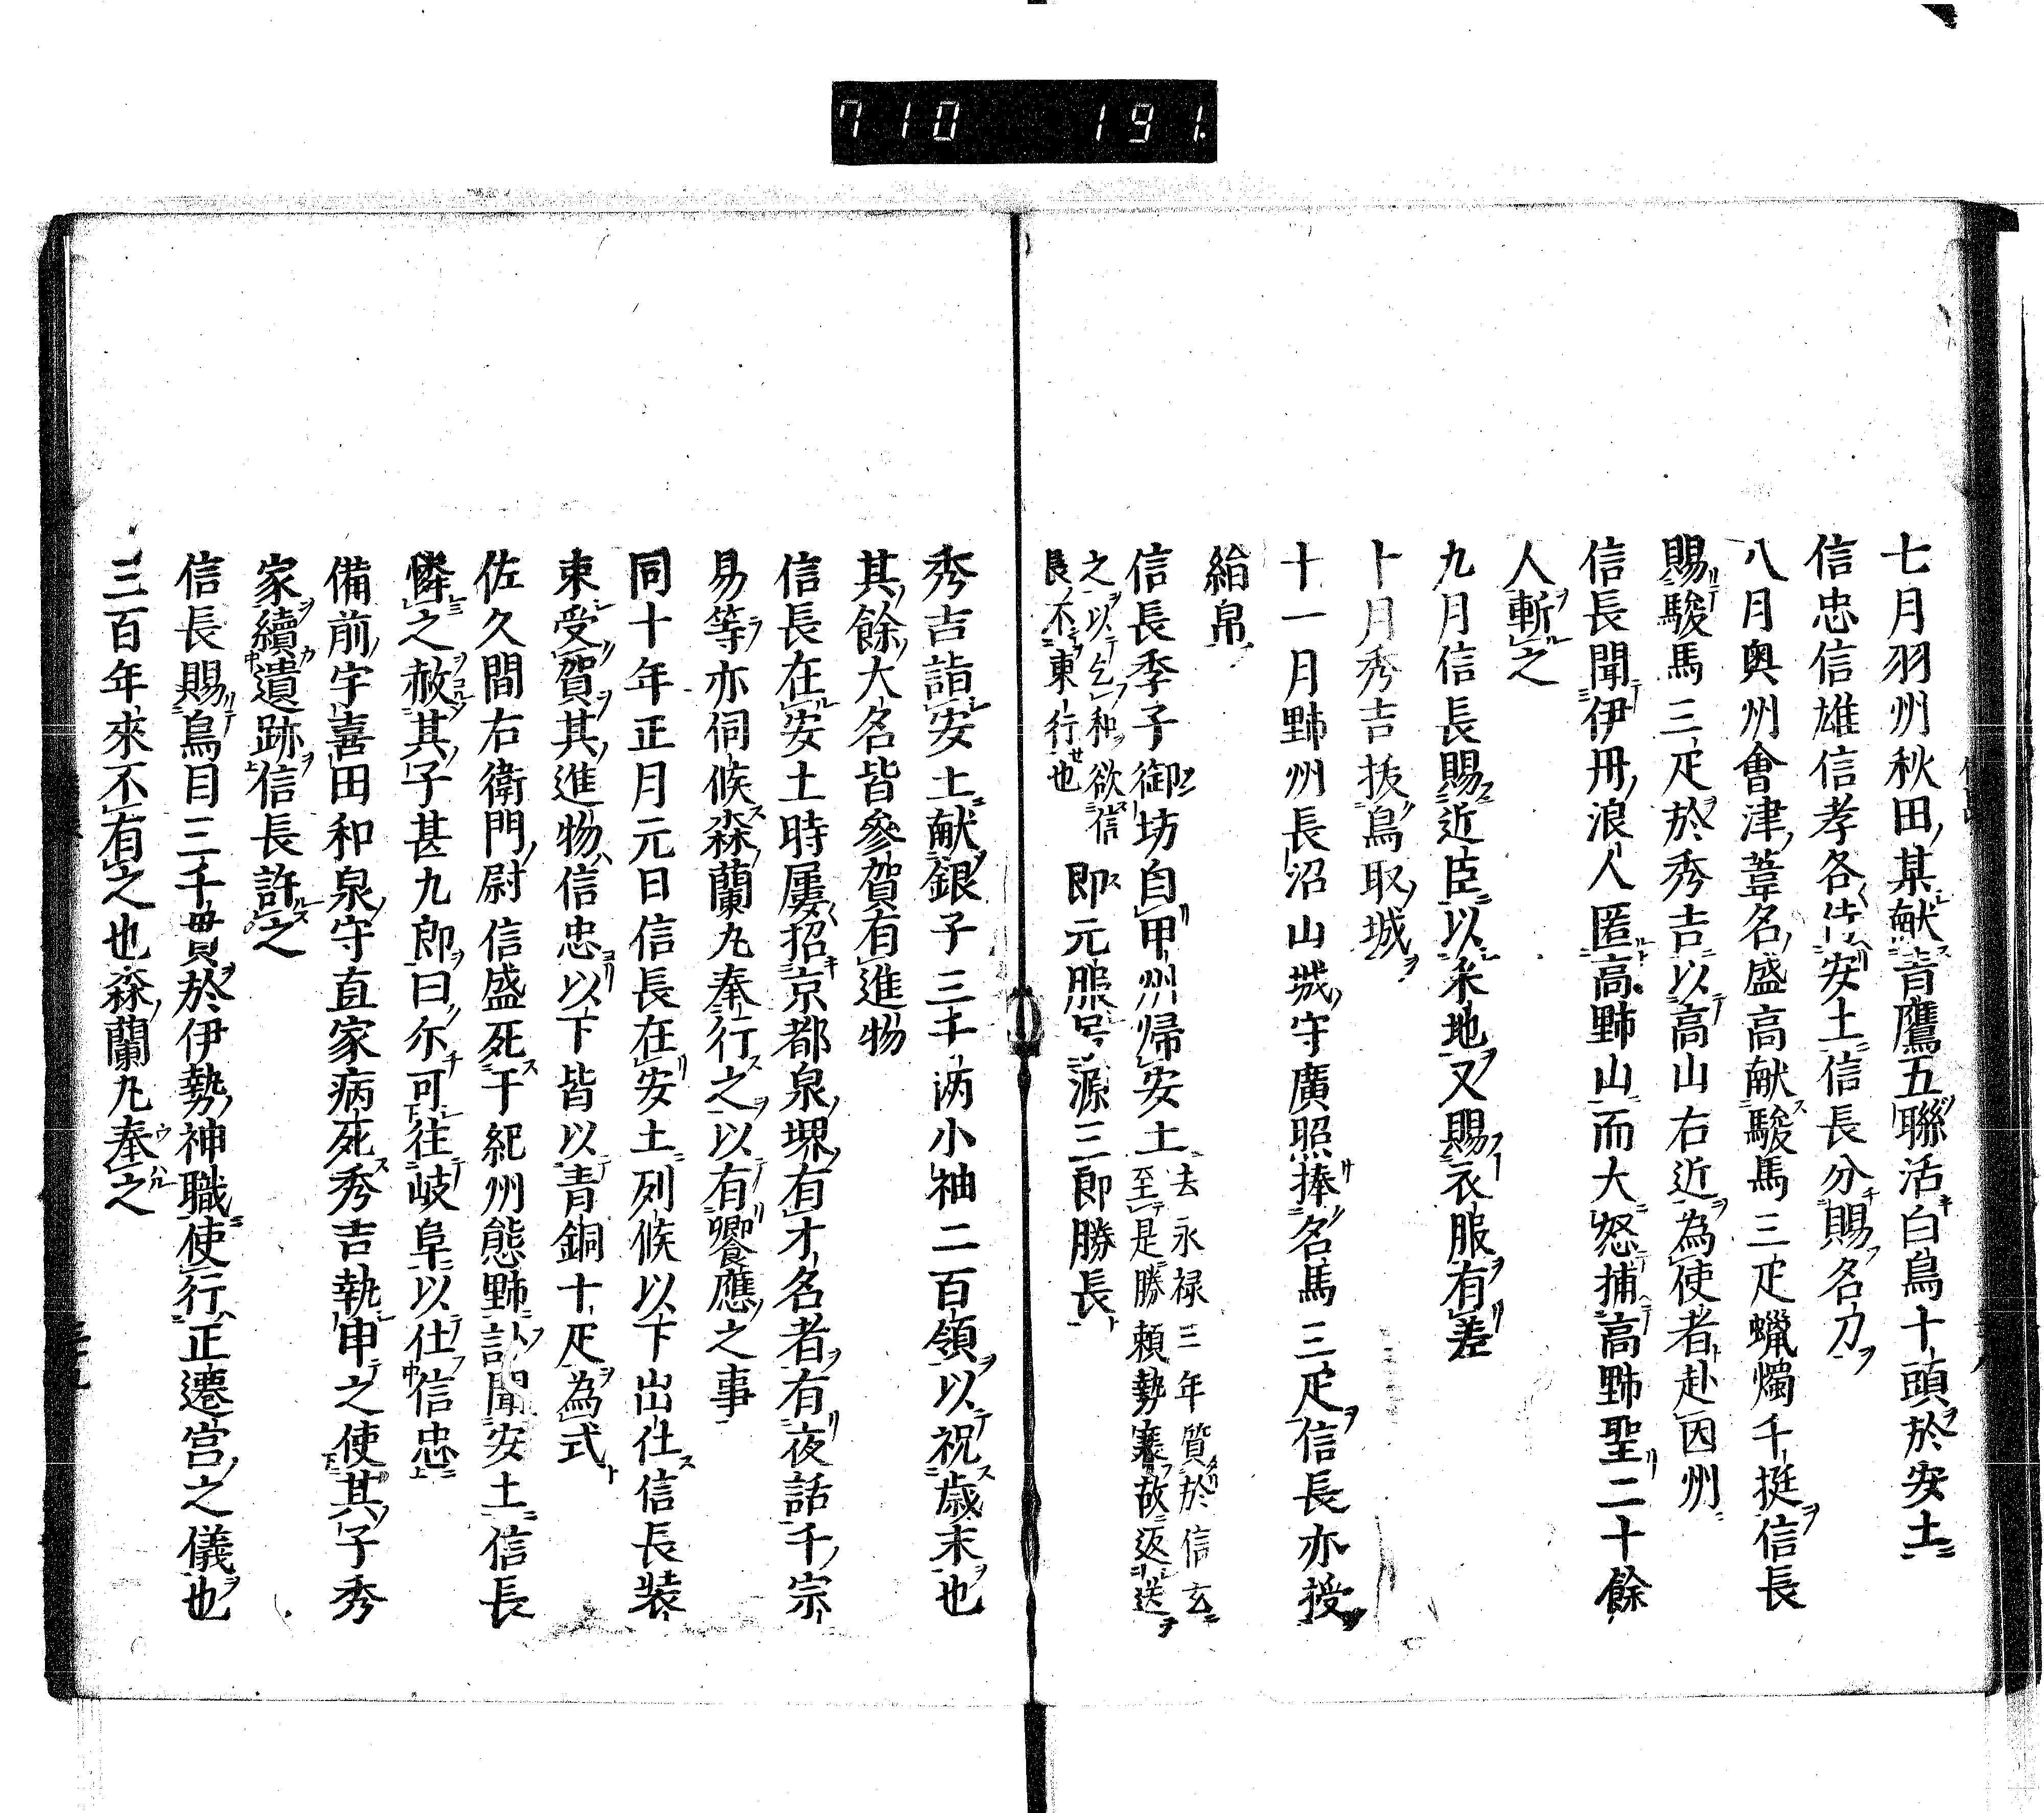 710 191.
七月羽州秋田某献青鷹五聯活白鳥十頭於安土
信忠信雄信孝各侍安土信長分賜名刀
八月奥州會津葦名盛高献駿馬三疋蠟燭千挺信長
賜駿馬三疋於秀吉以高山右近為使者赴因州
信長聞伊丹浪人匿高野山而大怒捕高野聖二十餘
人斬之
九月信長賜近臣以采地又賜衣服有差
十月秀吉抜鳥取城
十一月野州長沼山城守廣照捧名馬三疋信長亦授
給帛
信長季子御坊自甲州帰安土去永禄三年質於信玄
至是勝頼勢衰故返送
之以乞和欲信
長不東行也
即元服号源三郎勝長
秀吉詣安土献銀子三千両小袖二百領以祝歳末也
其餘大名皆參賀有進物
信長在安土時屢招京都泉堺有才名者有夜話千宗
易等亦伺候森蘭丸奉行之以有饗應之事
同十年正月元日信長在安土列候以下出仕信長装
束受賀其進物信忠以下皆以青銅十疋為式
佐久間右衛門尉信盛死于紀州熊野訃聞安土信長
憐之赦其子甚九郎曰尓可往岐阜以仕信忠
備前宇喜田和泉守直家病死秀吉執申之使其子秀
家續遺跡信長許之
信長賜鳥目三千貫於伊勢神職使行正遷宮之儀也
三百年來不有之也森蘭丸奉之